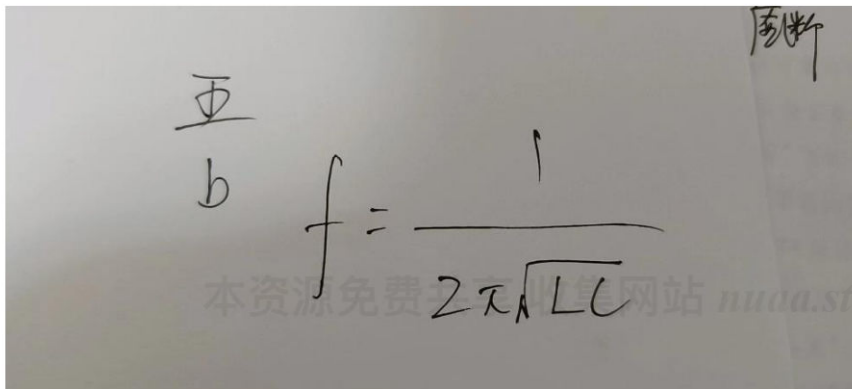 Φ
b
f = 1 / 2π√LC
本资源免费共享 收集网站 nuaa.st